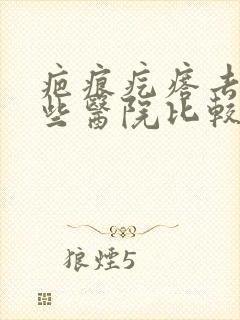 疤痕疙瘩去
些醫院比較
狼煙5